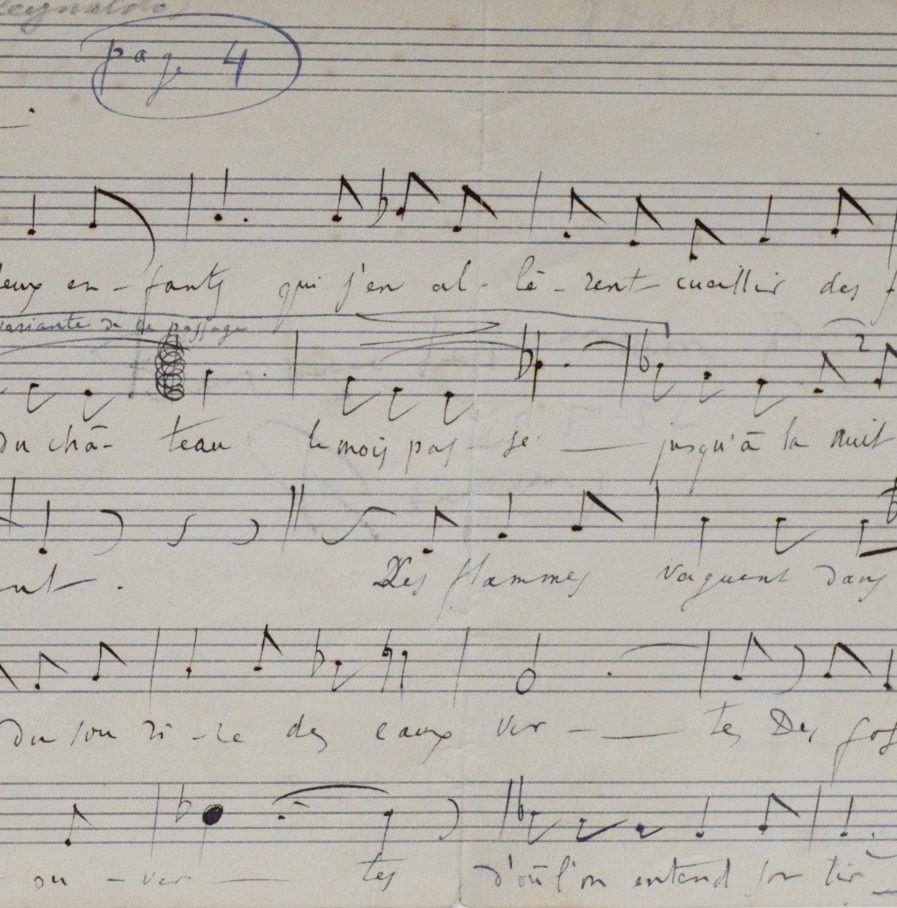 Reynaldo
R Hahn
page 4
deux en - fants qui s'en al - lè - rent cueillir des f
variante de ce passage
du châ- teau le mois pas - sé — jusqu'à la nuit
2
nt .
Les flammes vaguent dans
du sou ri - re des eaux ver - — tes Des fos
- ou - ver — tes d'où l'on entend son tir